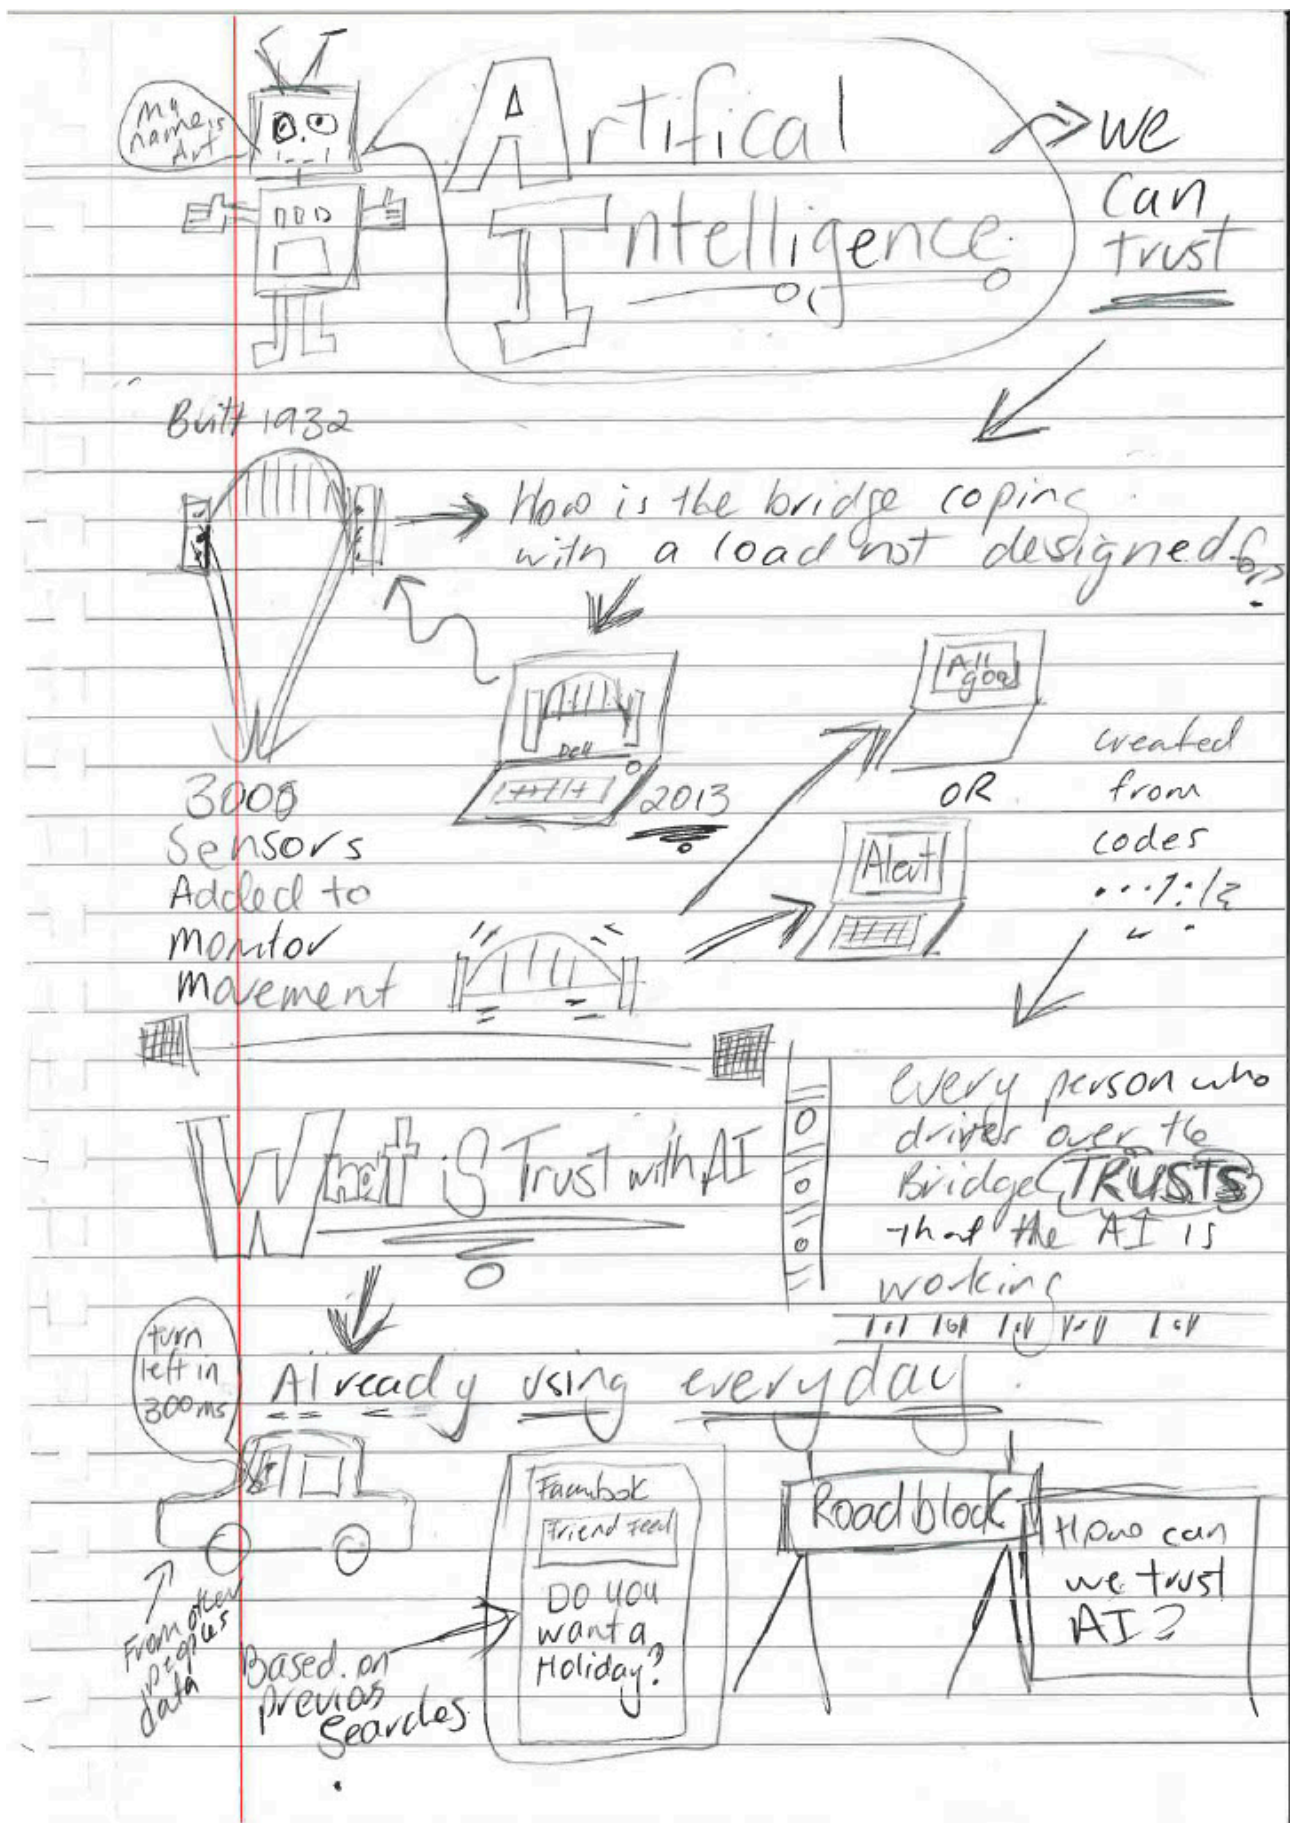 My
name is
Art
Artifical
Intelligence
we
can
trust
Built 1932
How is the bridge coping
with a load not designed for?
Dell
2013
All
good
OR
Alert
created
from
codes
3000
Sensors
Added to
monitor
movement
every person who
drives over the
Bridge TRUSTS
that the AI is
working
What is Trust with AI
Already using everyday.
turn
left in
300ms
From other
peoples
data
Based on
previos
searches.
Friend Feed
Do you
want a
Holiday?
Roadblock
How can
we trust
AI?